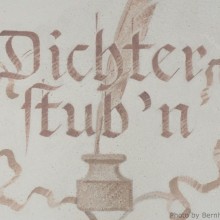 Dichter
ſtub'n
Photo by Bernh